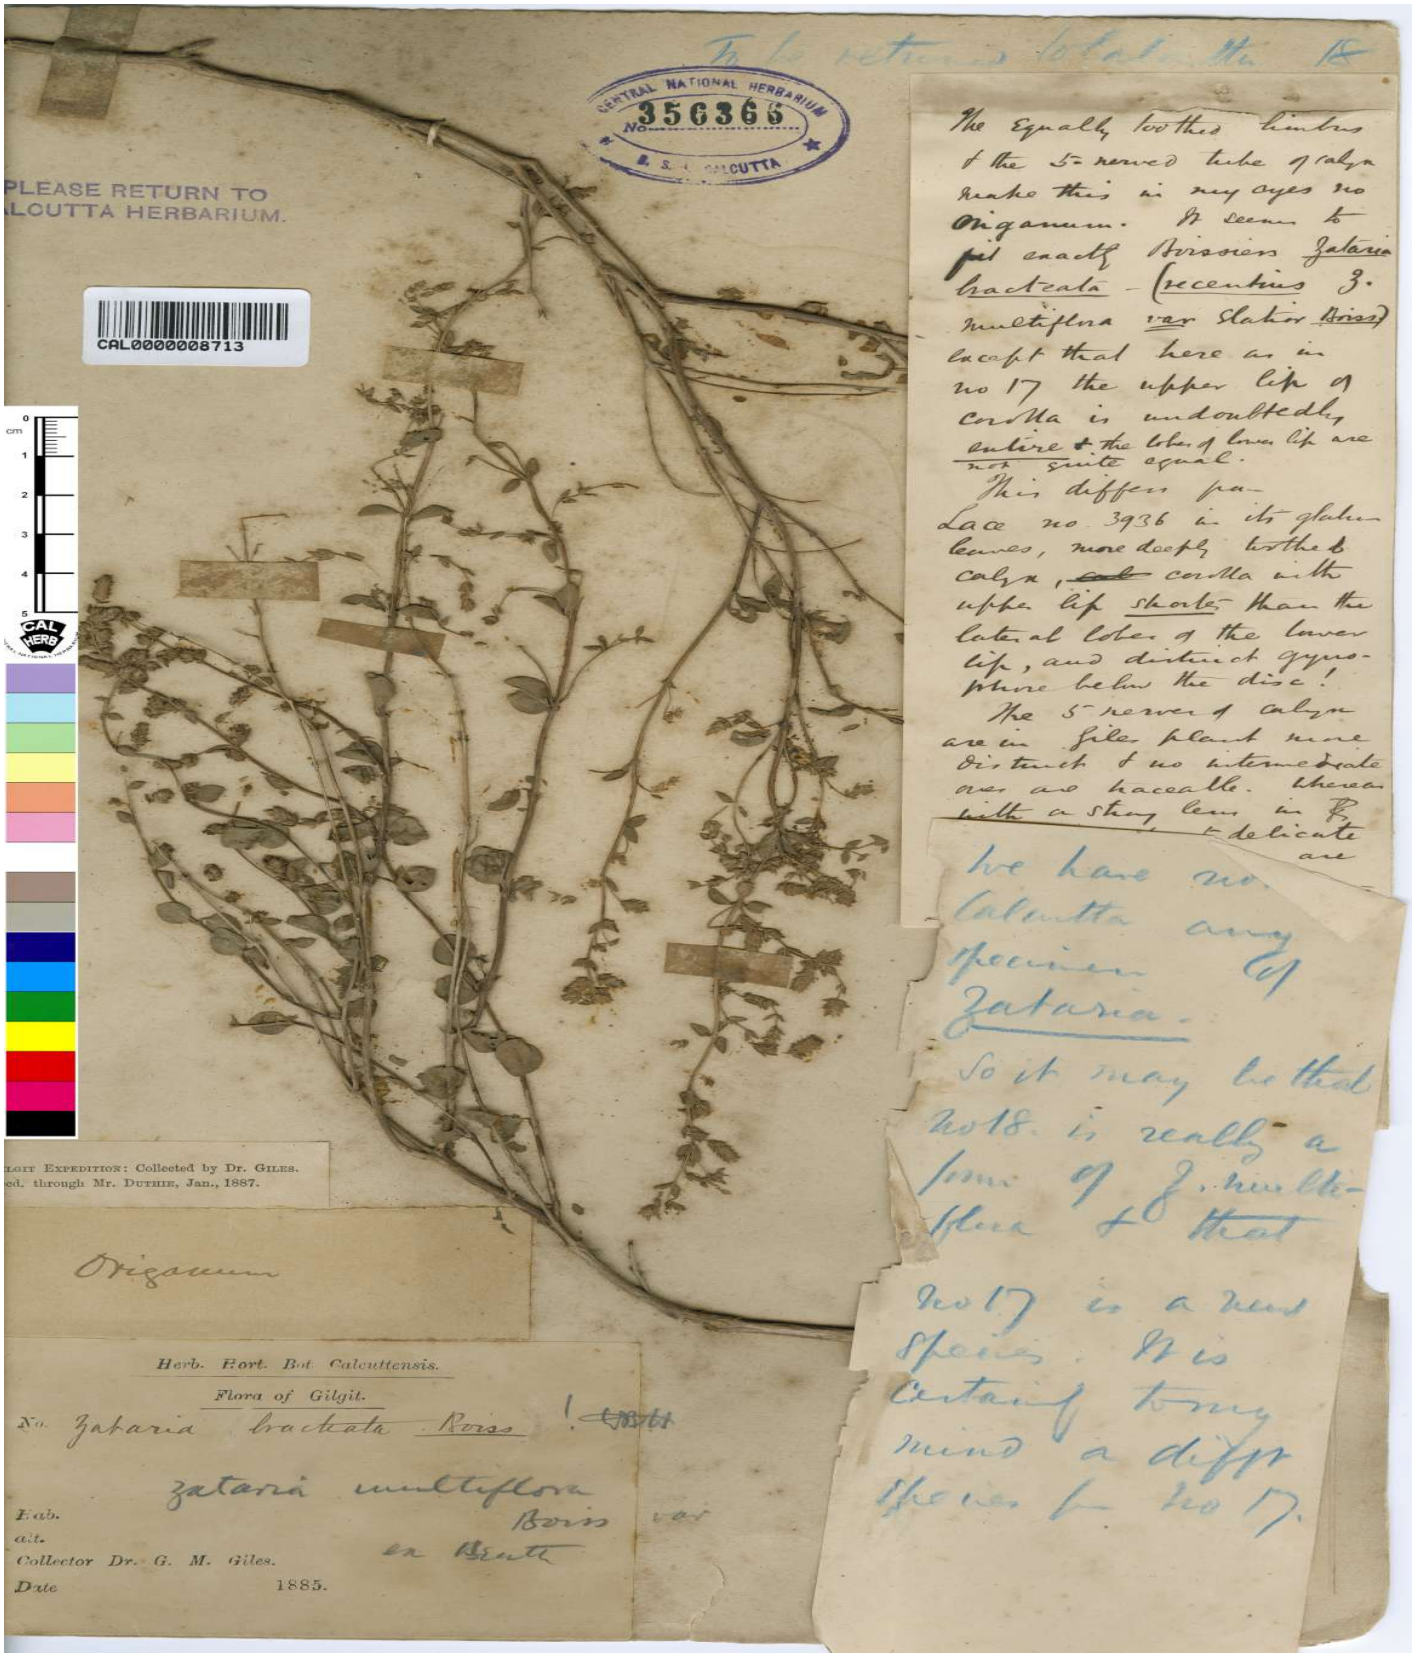 To be returned to Calcutta 18
CENTRAL NATIONAL HERBARIUM
No 356366
B. S. I. CALCUTTA
PLEASE RETURN TO
ALCUTTA HERBARIUM.
CAL0000008713
0
cm
1
2
3
4
5
CAL
HERB
The Equally toothed limbus
& the 5-nerved tube of calyx
make this in my eyes no
Origanum. It seems to
fit exactly Boissiers Zataria
bracteata - (recentius Z.
multiflora var elatior Boiss)
except that here as in
no 17 the upper lip of
corolla is undoubtedly
entire & the lobes of lower lip are
not quite equal.
This differs
Lace no. 3936 in its
leaves, more deeply toothed
calyx, corolla with
upper lip shorter than the
lateral lobes of the lower
lip, and distinct gyno-
phore below the disc!
The 5 nerves of calyx
are in Giles plant more
distinct & no intermediate
ones are traceable. whereas
with a strong lens in
delicate
are
We have no
Calcutta any
specimen of
Zataria.
So it may be that
no 18. is really a
form of Z. multi-
flora & that
no 17 is a new
species. It is
certainly to my
mind a difft
species fm no 17.
LGIT EXPEDITION: Collected by Dr. GILES.
ed. through Mr. DUTHIE, Jan., 1887.
Origanum
Herb. Hort. Bot. Calcuttensis.
Flora of Gilgit.
No. Zataria bracteata Boiss !
Zataria multiflora
Hab. Boiss var
alt. ex Benth
Collector Dr. G. M. Giles.
Date 1885.